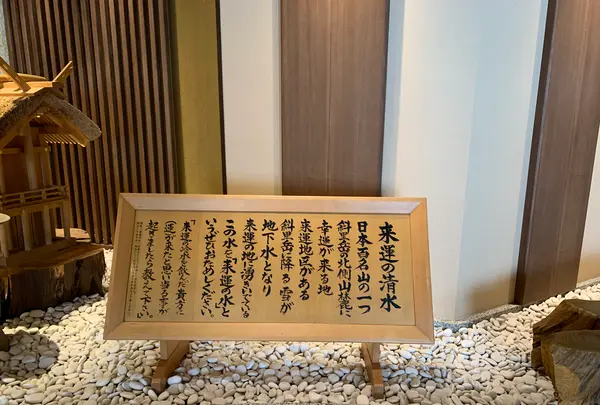 来運の清水
日本百名山の一つ
斜里岳の北側山麓に
幸運が来る地
来運地区がある
斜里岳に降る雪が
地下水となり
来運の地に湧きいでいる
この水を「来運の水」と
いいぜひおためしください。
「来運の水を飲んだ貴方に
（運が来たと思い当る事が
起りましたら教えて下さい。